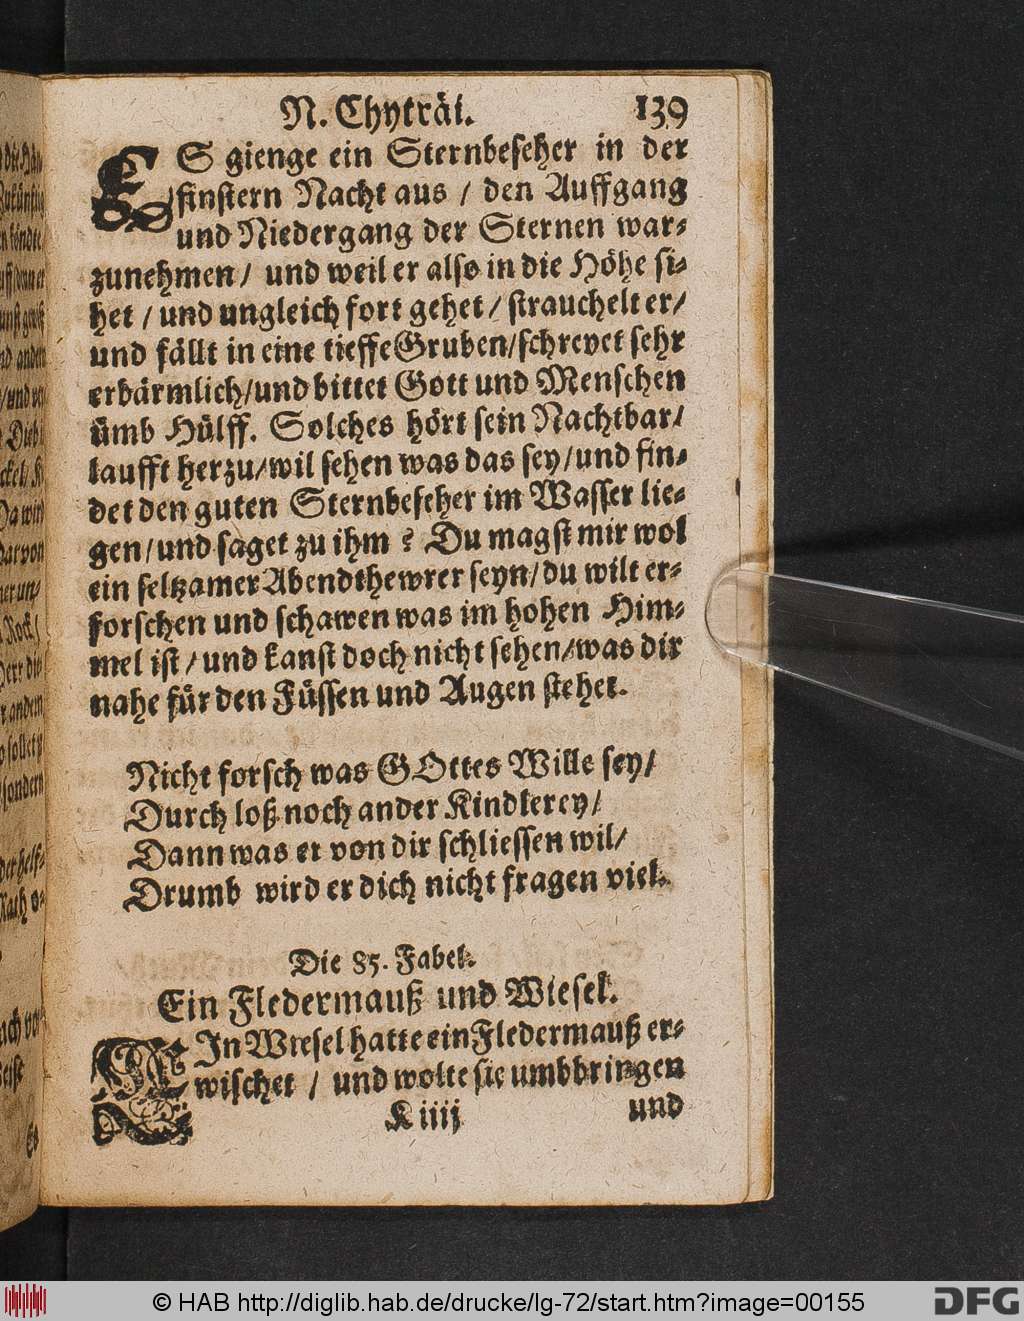 N. Chyträi. 139
ES gienge ein Sternbeseher in der
finstern Nacht aus / den Auffgang
und Niedergang der Sternen war-
zunehmen / und weil er also in die Höhe si-
het / und ungleich fort gehet / strauchelt er /
und fällt in eine tieffe Gruben / schreyet sehr
erbärmlich / und bittet Gott und Menschen
ümb Hülff. Solches hört sein Nachtbar /
laufft herzu / wil sehen was das sey / und fin-
det den guten Sternbeseher im Wasser lie-
gen / und saget zu ihm ? Du magst mir wol
ein seltzamer Abendthewrer seyn / du wilt er-
forschen und schawen was im hohen Him-
mel ist / und kanst doch nicht sehen / was dir
nahe für den Füssen und Augen stehet.
Nicht forsch was GOttes Wille sey /
Durch loß noch ander Kinderey /
Dann was er von dir schliessen wil /
Drumb wird er dich nicht fragen viel.
Die 85. Fabel.
Ein Fledermauß und Wiesel.
EIn Wiesel hatte ein Fledermauß er-
wischet / und wolte sie umbbringen
K iiij und
© HAB http://diglib.hab.de/drucke/lg-72/start.htm?image=00155
DFG